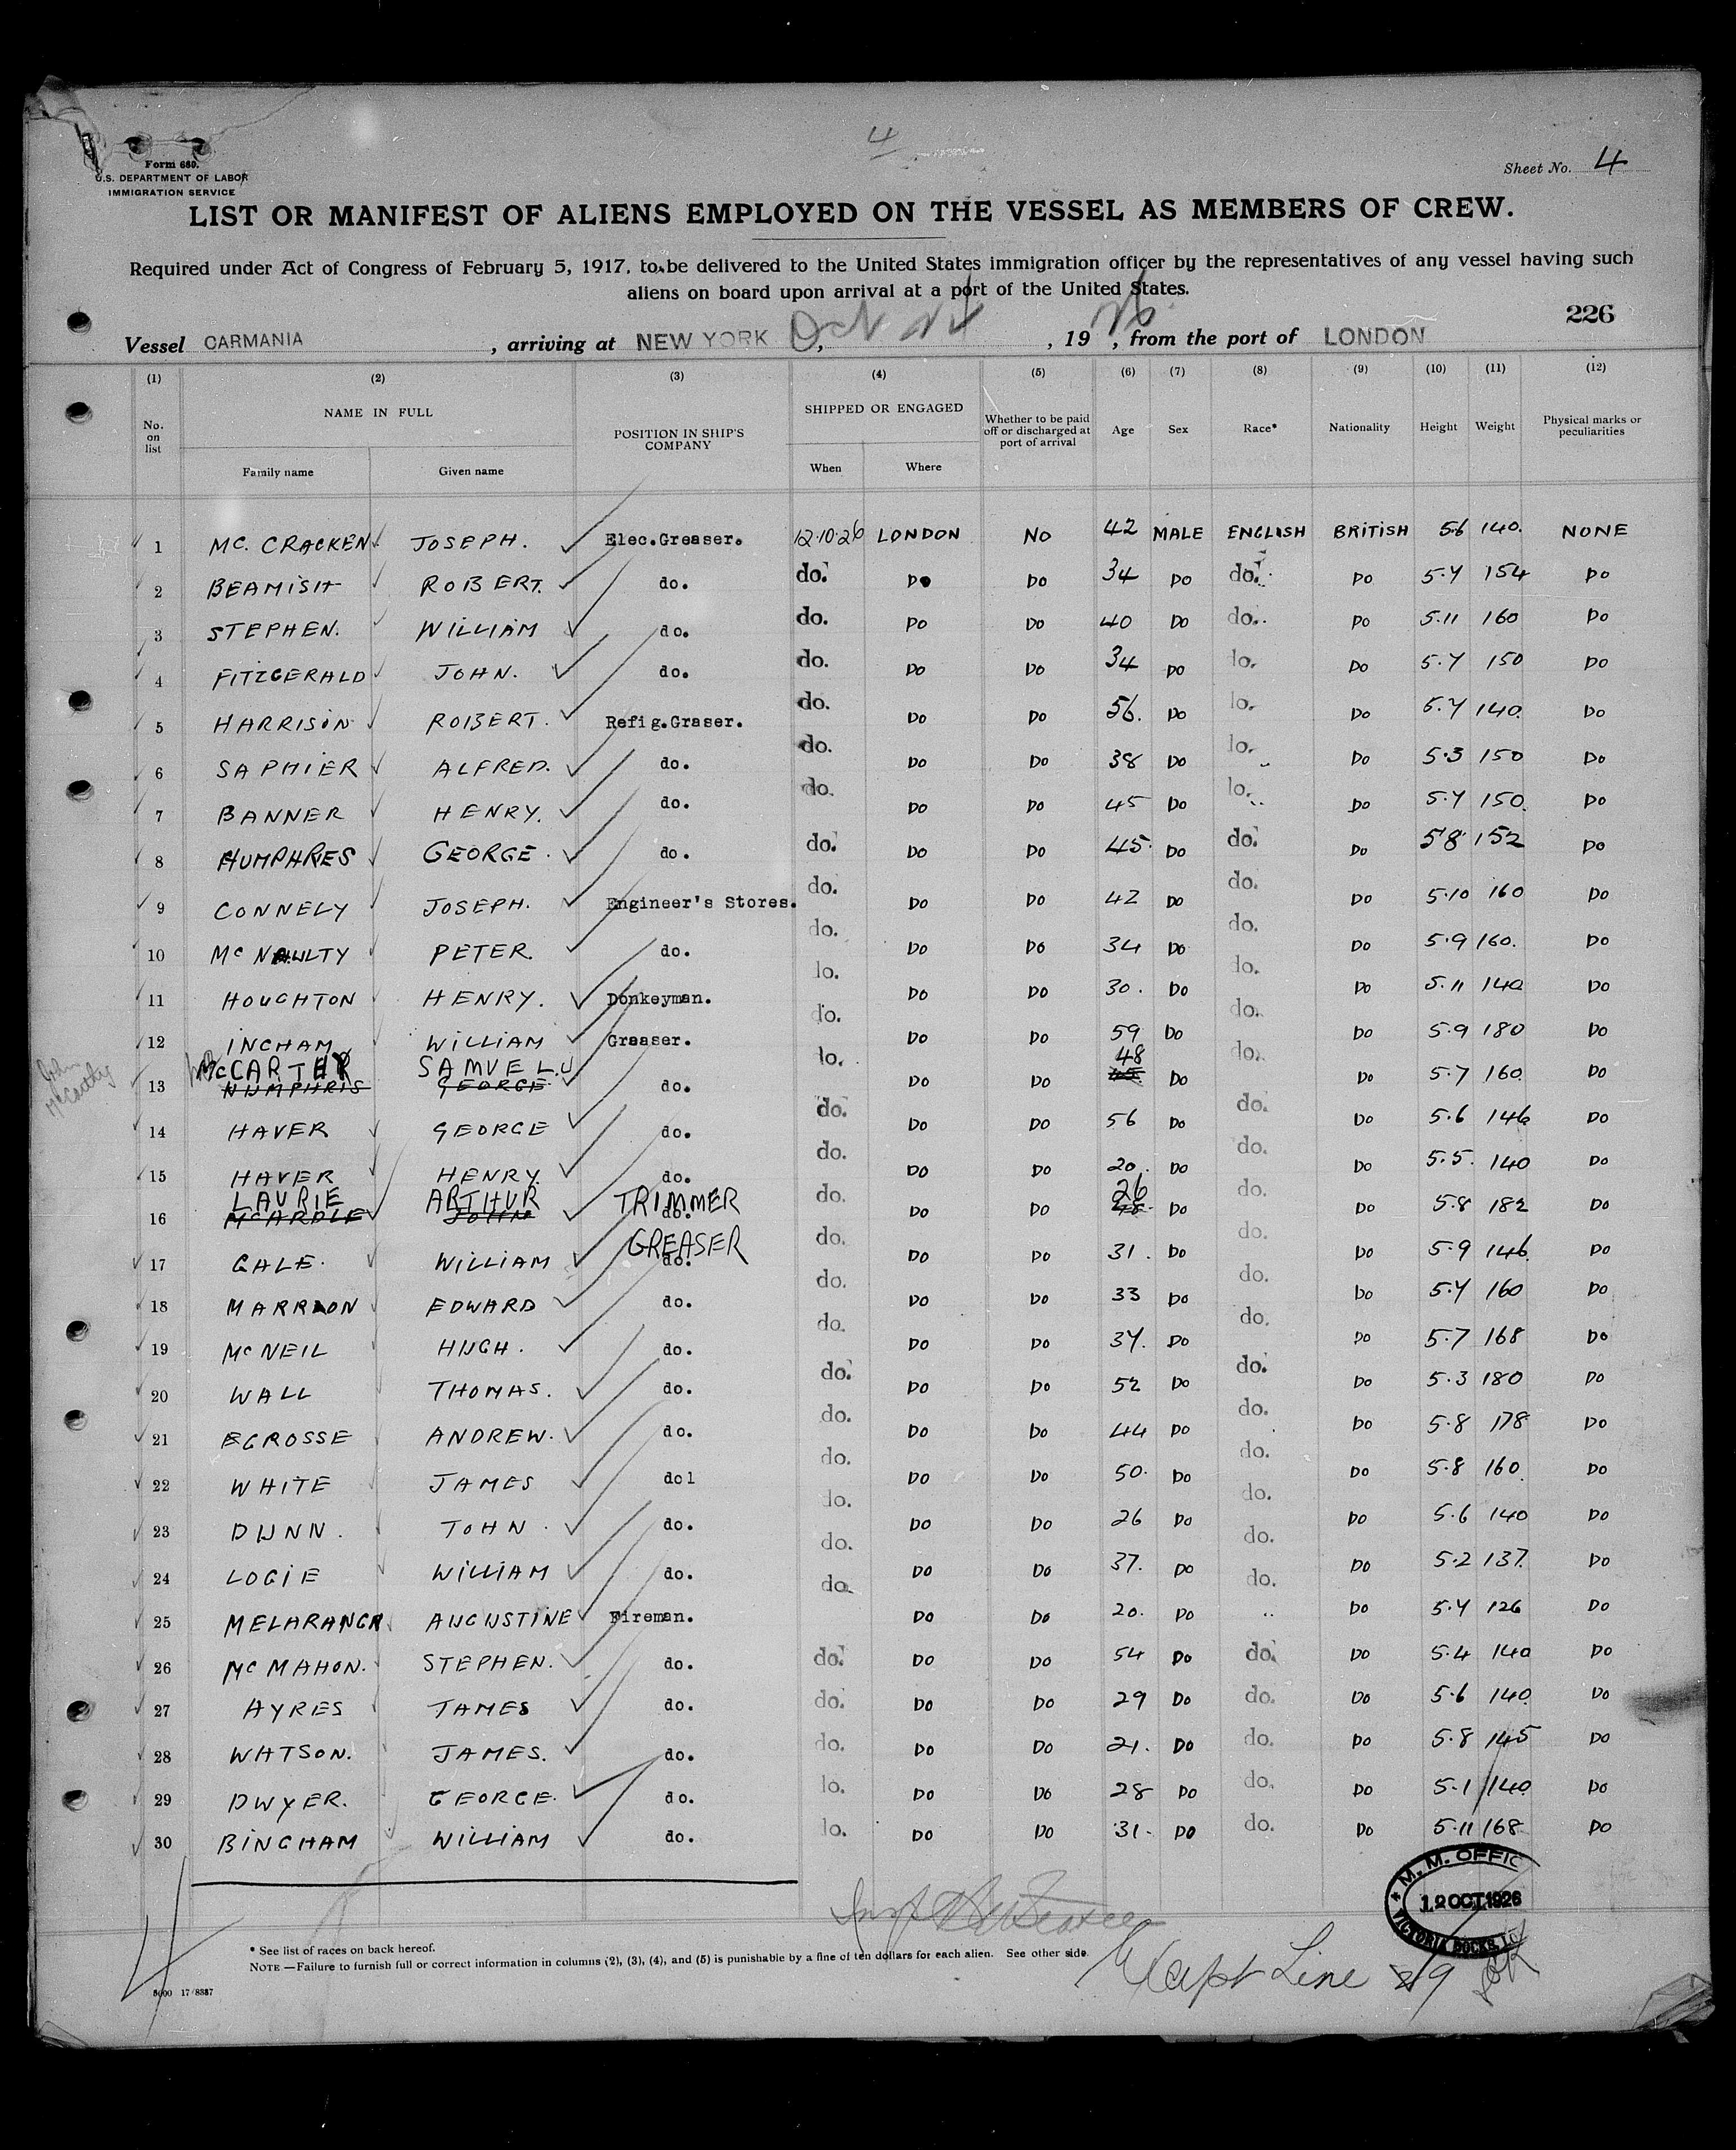 4
Form 680.
U.S. DEPARTMENT OF LABOR
IMMIGRATION SERVICE
Sheet No. 4
LIST OR MANIFEST OF ALIENS EMPLOYED ON THE VESSEL AS MEMBERS OF CREW.
Required under Act of Congress of February 5, 1917, to be delivered to the United States immigration officer by the representatives of any vessel having such
aliens on board upon arrival at a port of the United States.
226
Vessel CARMANIA, arriving at NEW YORK, Oct 24, 1926, from the port of LONDON
(1) (2) (3) (4) (5) (6) (7) (8) (9) (10) (11) (12)
No. on list NAME IN FULL POSITION IN SHIP'S COMPANY SHIPPED OR ENGAGED Whether to be paid off or discharged at port of arrival Age Sex Race* Nationality Height Weight Physical marks or peculiarities
Family name Given name When Where
1 MC. CRACKEN JOSEPH. Elec.Greaser. 12.10.26 LONDON NO 42 MALE ENGLISH BRITISH 5.6 140. NONE
2 BEAMISH ROBERT. do. do. DO DO 34 DO do. DO 5.7 154 DO
3 STEPHEN. WILLIAM do. do. DO DO 40 DO do. DO 5.11 160 DO
4 FITZGERALD JOHN. do. do. DO DO 34 DO lo. DO 5.7 150 DO
5 HARRISON ROBERT. Refig.Graser. do. DO DO 56. DO lo. DO 5.7 140. DO
6 SAPHIER ALFRED. do. do. DO DO 38 DO lo. DO 5.3 150 DO
7 BANNER HENRY. do. do. DO DO 45 DO lo. DO 5.7 150. DO
8 HUMPHRES GEORGE. do. do. DO DO 45. DO do. DO 5 8 152 DO
9 CONNELY JOSEPH. Engineer's Stores. do. DO DO 42 DO do. DO 5.10 160 DO
10 Mc NAULTY PETER. do. do. DO DO 34 DO do. DO 5.9 160. DO
11 HOUGHTON HENRY. Donkeyman. lo. DO DO 30. DO do. DO 5.11 140 DO
12 INGHAM WILLIAM Greaser. do. DO DO 59 DO do. DO 5.9 180 DO
McCARTHY SAMUEL. 48
John McCarthy
13 HUMPHRIS GEORGE do. lo. DO DO 45. DO do. DO 5.7 160. DO
14 HAVER GEORGE do. do. DO DO 56 DO do. DO 5.6 146 DO
15 HAVER HENRY. do. do. DO DO 20. DO do. DO 5.5. 140 DO
LAURIE ARTHUR TRIMMER 26
16 MCARDLE JOHN do. do. DO DO 48. DO do. DO 5.8 182 DO
GREASER
17 GALE. WILLIAM do. do. DO DO 31. DO do. DO 5.9 146. DO
18 MARRION EDWARD do. do. DO DO 33 DO do. DO 5.7 160 DO
19 Mc NEIL HUGH. do. do. DO DO 37. DO do. DO 5.7 168 DO
20 WALL THOMAS. do. do. DO DO 52 DO do. DO 5.3 180 DO
21 EGROSSE ANDREW. do. do. DO DO 44 DO do. DO 5.8 178 DO
22 WHITE JAMES do1 do. DO DO 50. DO do. DO 5.8 160. DO
23 DUNN. JOHN. do. lo. DO DO 26 DO do. DO 5.6 140 DO
24 LOGIE WILLIAM do. do. DO DO 37. DO do. DO 5.2 137. DO
25 MELARANGA AUGUSTINE Fireman. do. DO DO 20. DO do. DO 5.7 126 DO
26 Mc MAHON. STEPHEN. do. do. DO DO 54 DO do. DO 5.4 140 DO
27 AYRES JAMES do. do. DO DO 29 DO do. DO 5.6 140. DO
28 WATSON. JAMES. do. do. DO DO 21. DO do. DO 5.8 145 DO
29 DWYER. GEORGE. do. lo. DO DO 28 DO do. DO 5.1 140. DO
30 BINGHAM WILLIAM do. lo. DO DO 31. DO do. DO 5.11 168 DO
M. M. OFFIC
12 OCT 1926
VICTORIA DOCKS
* See list of races on back hereof.
NOTE—Failure to furnish full or correct information in columns (2), (3), (4), and (5) is punishable by a fine of ten dollars for each alien. See other side.
Line 29
5000 17/8337